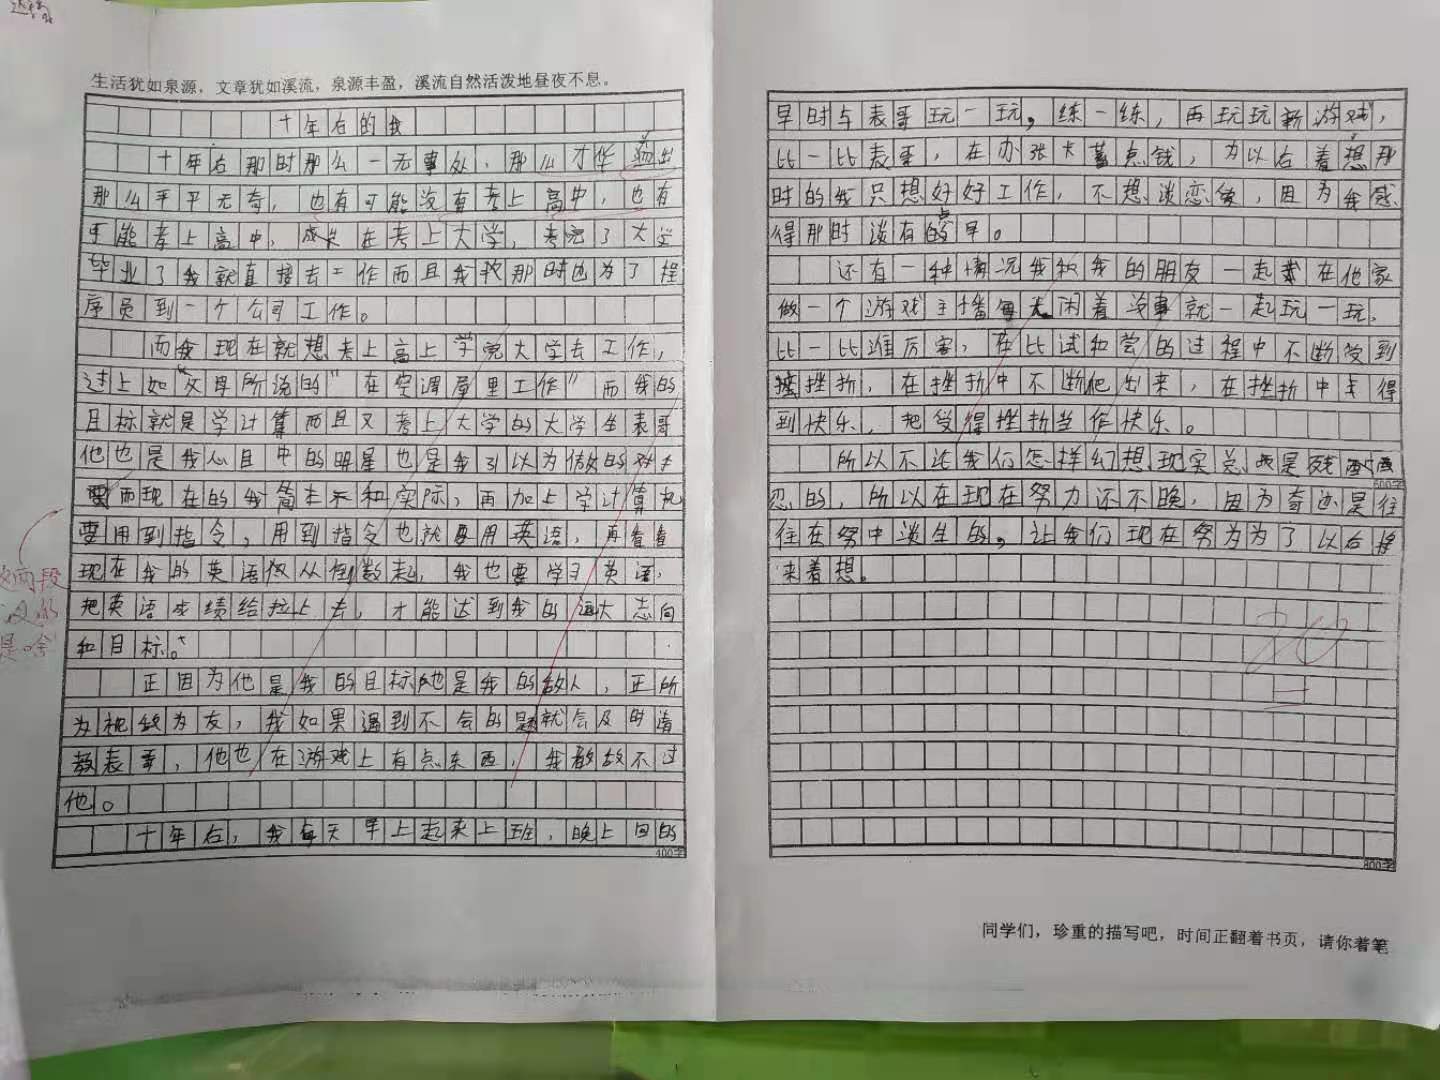 生活犹如泉源，文章犹如溪流，泉源丰盈，溪流自然活泼地昼夜不息。
十年右的我
十年右那时那么一无事处，那么才华
那么平平无奇，也有可能没有考上高中，也有
可能考上高中，在考上大学，考完了大学
毕业了我就直接去工作而且我那时也为了程
序员到一个公司工作。
而我现在就想考上高上学完大学去工作，
过上如父母所说的"在空调屋里工作"而我的
目标就是学计算而且又考上大学的大学生表哥
他也是我心目中的明星也是我引以为傲的对手
而现在的我简太不和实际，再加上学计算机
要用到指令，用到指令也就要用英语，再看看
现在我的英语仅从倒数起，我也要学习英语，
把英语成绩给拉上去，才能达到我的远大志向
和目标。
正因为他是我的目标他是我的敌人，正所
为视敌为友，我如果遇到不会的题就会及时请
教表哥，他也在游戏上有点东西，我敌不过
他。
十年右，我每天早上起来上班，晚上回的
400字
早时与表哥玩一玩，练一练，再玩玩新游戏，
比一比表哥，在办张卡蓄点钱，为以右着想那
时的我只想好好工作，不想谈恋爱，因为我感
得那时谈有点的早。
还有一种情况我和我的朋友一起在他家
做一个游戏主播每天闲着没事就一起玩一玩，
比一比谁厉害，在比试和尝的过程中不断受到
挫折，在挫折中不断爬出来，在挫折中得
到快乐，把受得挫折当作快乐。
所以不论我们怎样幻想现实总是残
600字
忍的，所以在现在努力还不晚，因为奇迹是往
往在努中谈生的，让我们现在努为为了以右将
来着想。
800字
同学们，珍重的描写吧，时间正翻着书页，请你着笔
这两段
是啥